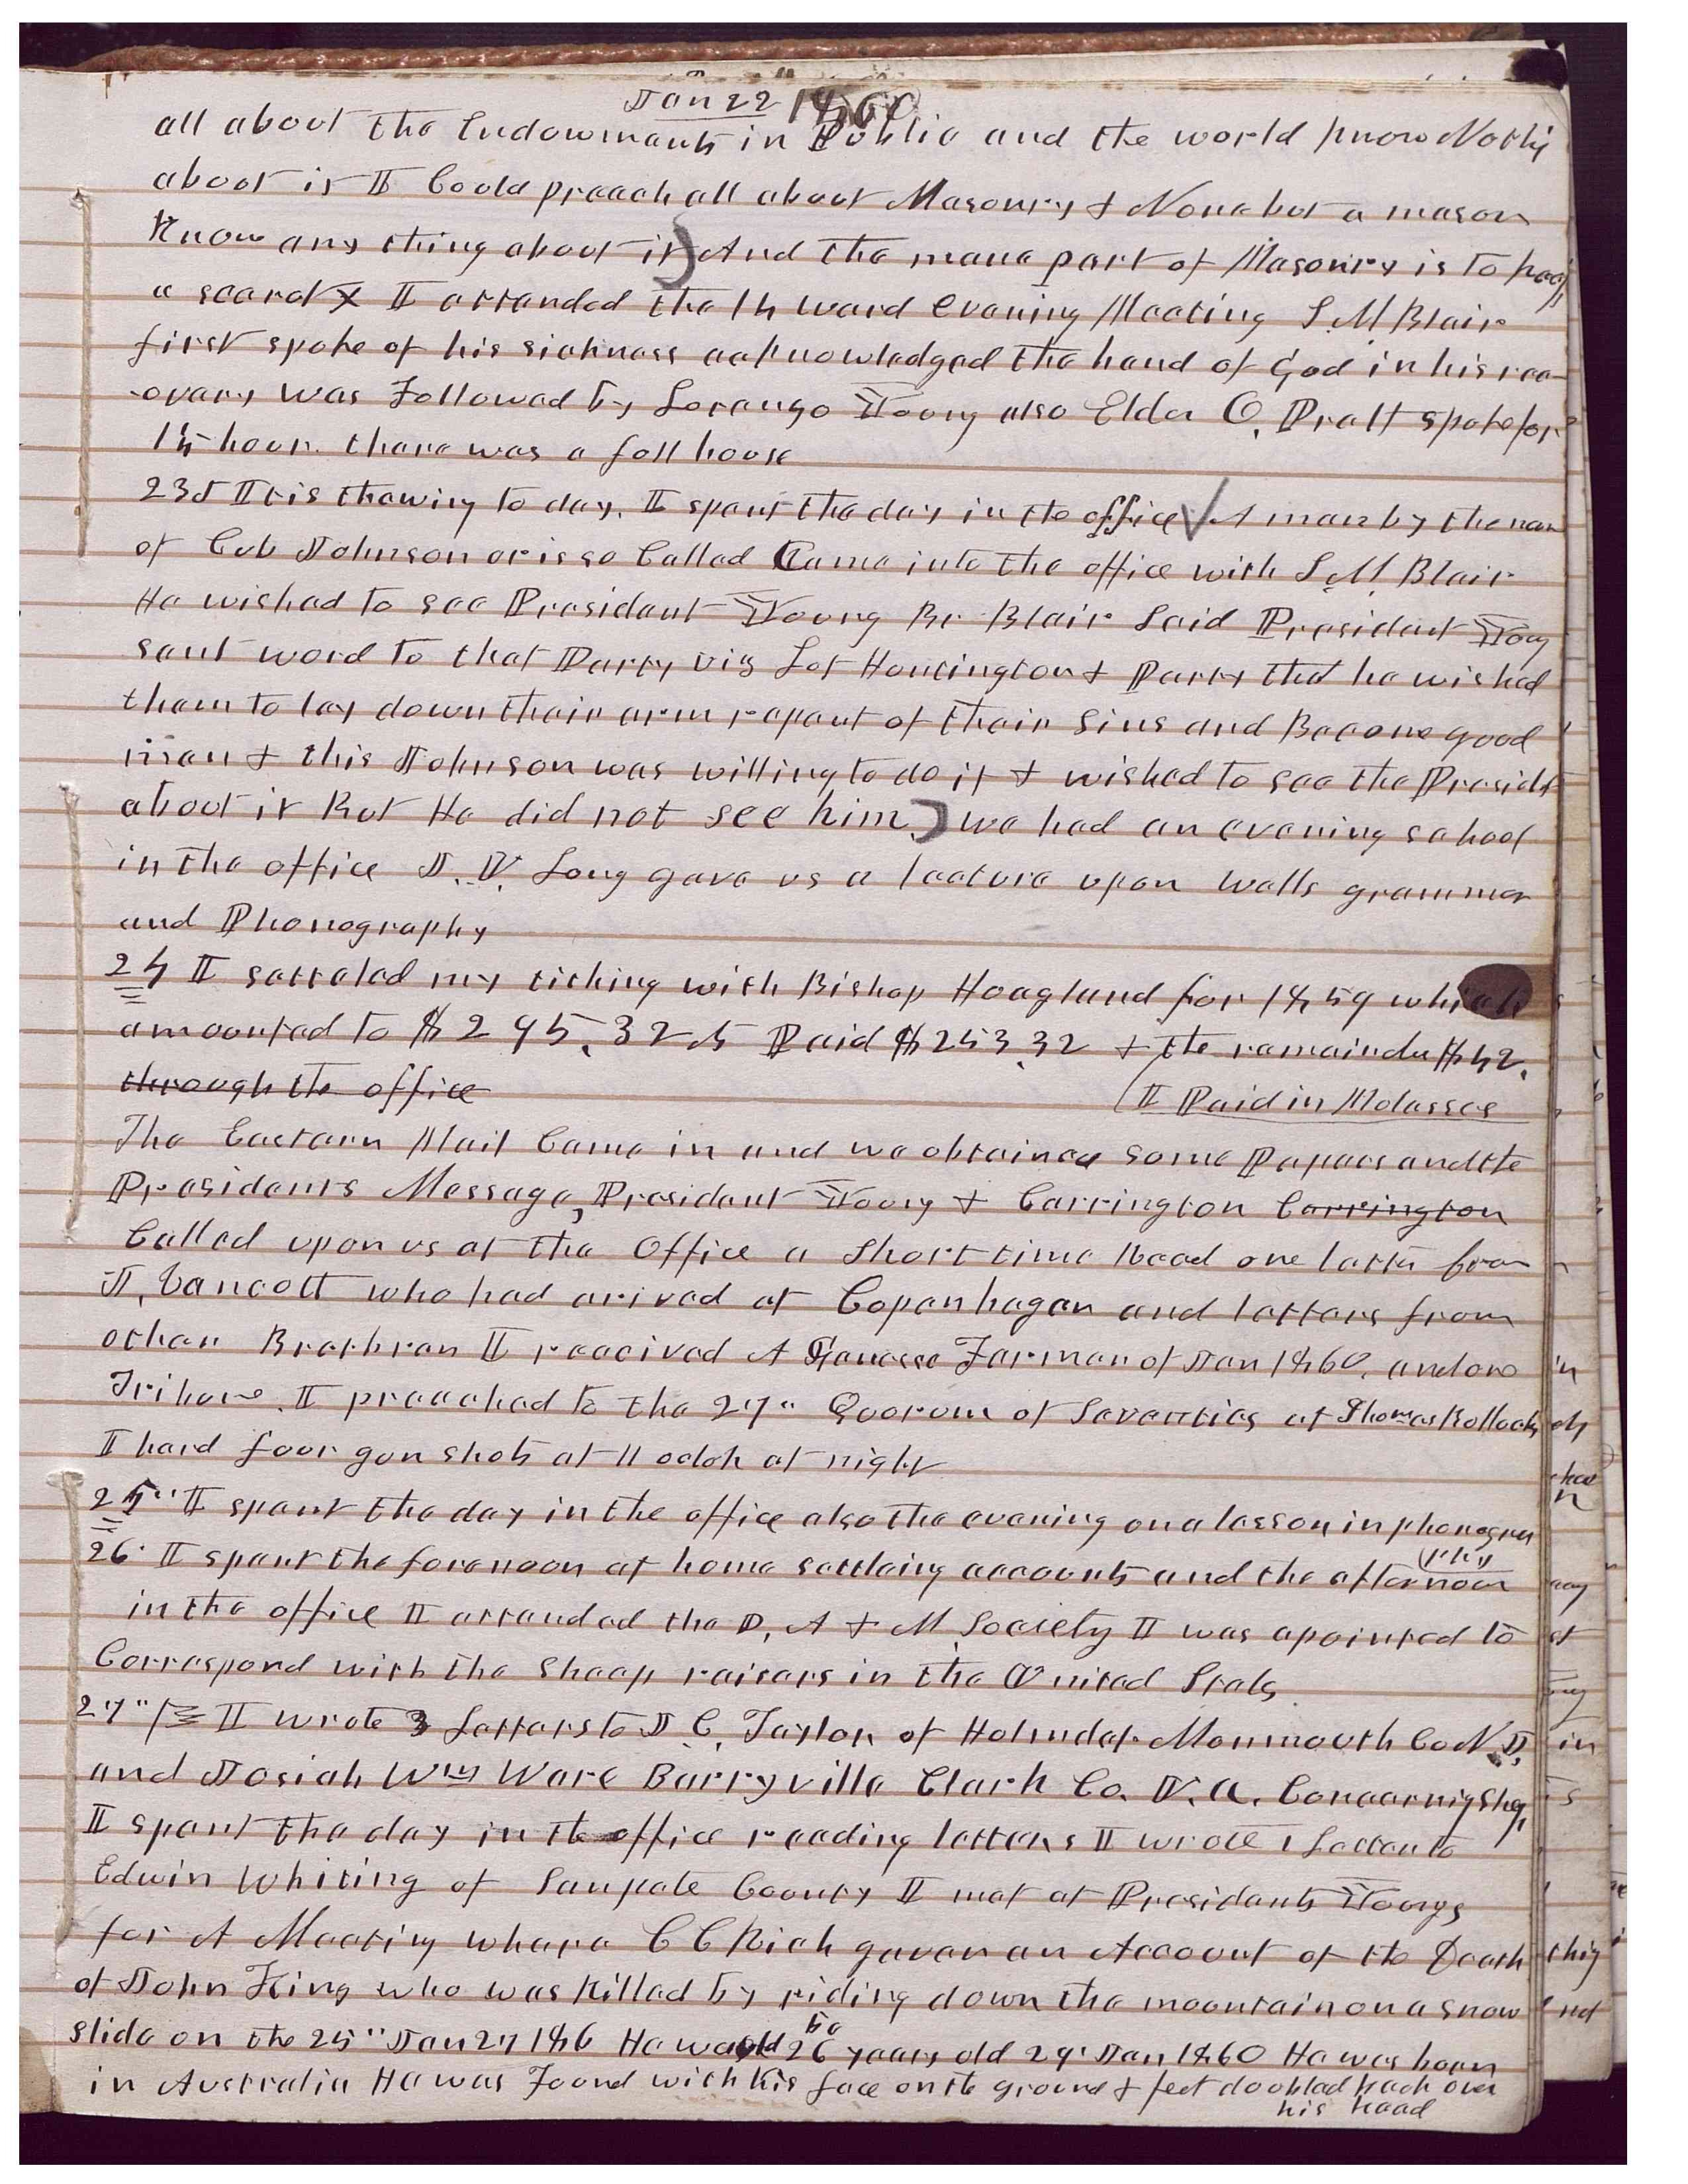 Jan 22 1860
all about the Endowments in Public and the world know Nothi
about it I Could preach all about Masonry & None but a mason
Know any thing about it) And the mane part of Masonry is to keep
a secret X I attended the 14 ward evening Meeting S. M Blair
first spoke of his sickness acknowledged the hand of God in his rec-
-overy was Followed by Lorenzo Young also Elder O. Pratt spoke for
1½ hour. there was a full house
23d It is thawing to day. I spent the day in the office √ A man by the nam
of Cub Johnson or is so Called Came into the office with S. M. Blair
He wished to see President Young Br Blair Said President Young
sent word to that Party viz Lot Huntington & Party that he wished
them to lay down their arm repent of their Sins and Become good
men & this Johnson was willing to do it & wished to see the Presidt
about it But He did not see him.) we had an evening school
in the office J. V. Long gave us a lecture upon Wells grammer
and Phonography
24 I setteled my tithing with Bishop Hoagland for 1859 which
amounted to $295.32.5 Paid $253.32 & the remainder $42.
through the office
(I Paid in Molasses
The Eastern Mail Came in and we obtained some Papers and the
Presidents Message, President Young & Carrington Carrington
Called upon us at the Office a Short time Read one letter from
J. Vancott who had arived at Copenhagen and letters from
other Brethren I received A Genesee Farmer of Jan 1860. and one
Tribune. I preached to the 27" Quorum of Seventies at Thomas Bullocks
I hard four gun shots at 11 oclok at night
25" I spent the day in the office also the evening on a lesson in phonogra
(phy
26· I spent the forenoon at home settleing accounts and the afternoon
in the office I attended the D, A & M Society I was apointed to
Correspond with the Sheep raisers in the United States
27" I wrote 3 Letters to J C. Taylor of Holmdel Monmouth Co N. J.
and Josiah Wm Ware Barryville Clark Co. V. a. Concerning Sheep
I spent the day in the office reading letters I wrote 1 Letter to
Edwin Whiting of Sanpete County I met at Presidents Youngs
for A Meeting where C C Rich gaven an Account of the Death
of John King who was Killed by riding down the mountain on a snow
be
slide on the 25" Jan 27 186 He would 26 years old 29' Jan 1860 He was born
in Australia He was Found with his face on the ground & feet doubled back over
his head